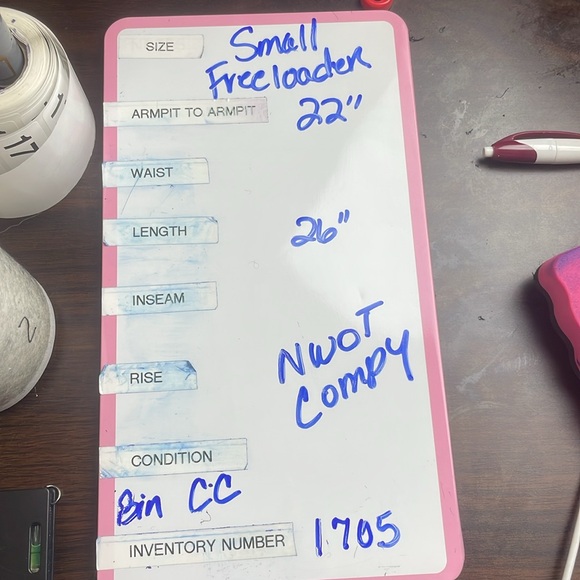 SIZE Small
Freeloader
ARMPIT TO ARMPIT 22"
WAIST
LENGTH 26"
INSEAM
NWOT
RISE Compy
CONDITION
Bin CC
INVENTORY NUMBER 1705
17
1
2